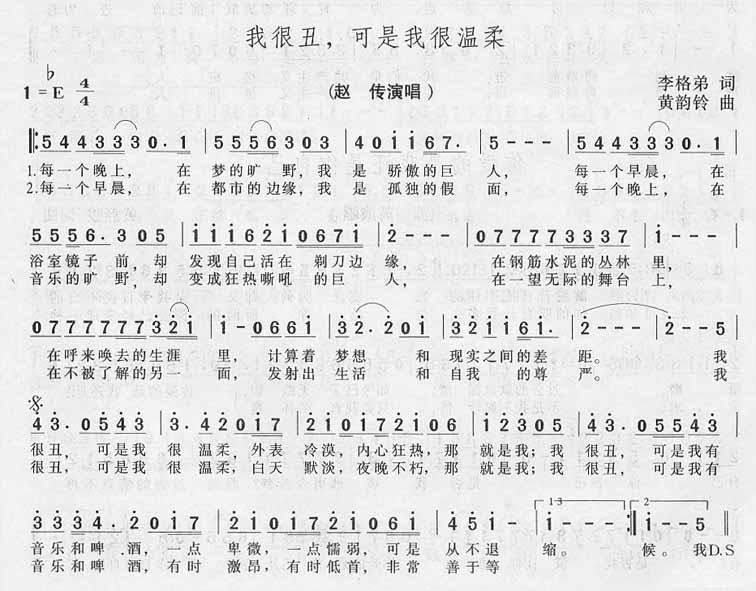 我很丑，可是我很温柔
1=♭E 4/4
（赵 传演唱）
李格弟 词
黄韵铃 曲
5 4 4 3 3 3 0. 1 | 5 5 5 6 3 0 3 | 4 0 1 1 6 7. | 1 - - - | 5 4 4 3 3 3 0. 1
1.每一个晚上，在 梦的旷 野，我 是 骄傲的巨 人， 每一个早晨，在
2.每一个早晨，在 都市的边缘，我 是 孤独的假 面， 每一个晚上，在
5 5 5 6. 3 0 5 | 1 1 1 1 6 1 2 1 | 6 0 7 1 6 7 1 | 2 - - - | 0 7 7 7 7 3 3 3 7 | 1 - - -
浴室镜子 前，却 发现自己活在 剃刀边 缘， 在钢筋水泥的丛林 里，
音乐的旷 野，却 变成狂热嘶吼的 巨 人， 在一望无际的舞台 上，
0 7 7 7 7 7 7 7 3 2 1 | 1 - 0 6 6 1 | 3 2. 2 0 1 | 3 2 1 1 6 1. | 2 - - - | 2 - - 5
在呼来唤去的生涯 里，计算着 梦想 和 现实之间的差 距。 我
在不被了解的另一 面，发射出 生活 和 自我的尊 严。 我
4 3. 0 5 4 | 3. 4 2 0 1 7 | 2 1 0 1 7 2 1 0 1 7 | 2 1 0 6 1 2 3 | 4 3. 0 5 4
很丑， 可是我 很 温柔，外表 冷漠，内心狂热，那 就是我；我 很丑，可是我有
很丑， 可是我 很 温柔，白天 默淡，夜晚不朽，那 就是我；我 很丑，可是我有
3 3 3 4. 2 0 1 7 | 2 1 0 1 7 2 1 0 6 1 | 4 5 1 - | 1 3 1 - - 5 | 2 1 - - 5
音乐和啤 酒，一点 卑微，一点懦弱，可是 从不退 缩。 候。我D.S
音乐和啤 酒，有时 激昂，有时低首，非常 善于等